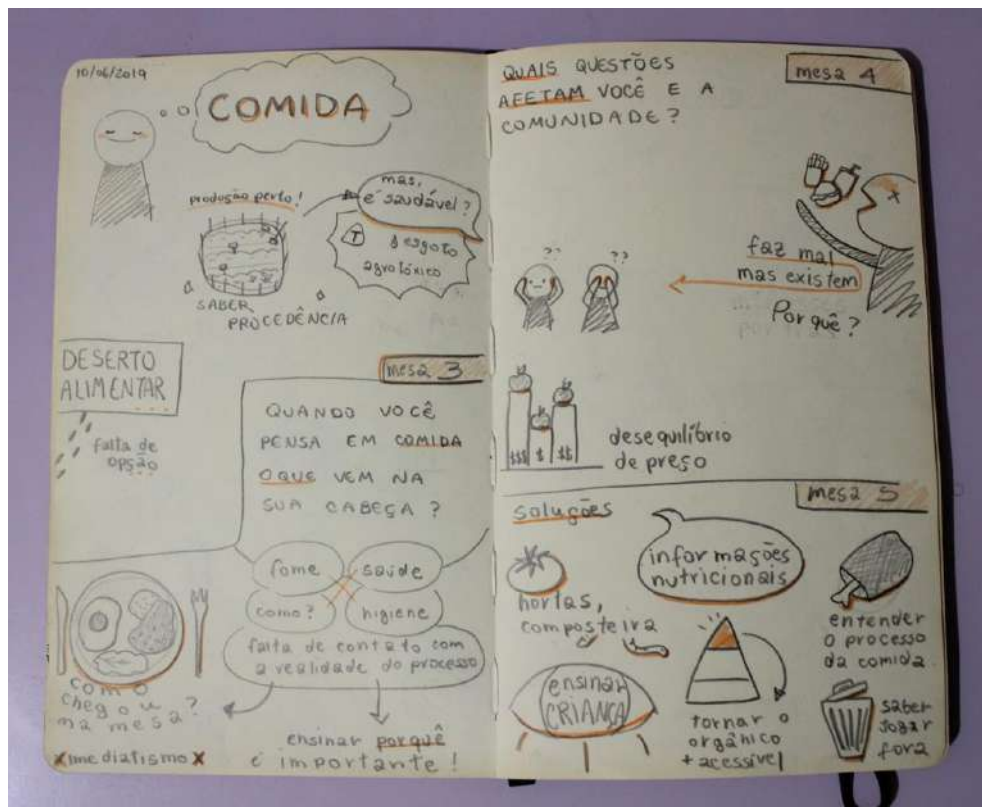 10/06/2019
COMIDA
produção perto!
mas,
é saudável?
T
esgoto
agrotóxico
SABER
PROCEDÊNCIA
DESERTO
ALIMENTAR
falta de
opção
mesa 3
QUANDO VOCÊ
PENSA EM COMIDA
O QUE VEM NA
SUA CABEÇA?
fome
saúde
como?
higiene
falta de contato com
a realidade do processo
como
chegou
na mesa?
X imediatismo X
ensinar porquê
é importante!
QUAIS QUESTÕES
AFETAM VOCÊ E A
COMUNIDADE?
mesa 4
?? ??
faz mal
mas existem
Por quê?
$$$ $ $$
desequilíbrio
de preço
mesa 5
soluções
informações
nutricionais
hortas,
composteira
entender
o processo
da comida
ensinar
CRIANÇA
tornar o
orgânico
+ acessível
saber
jogar
fora